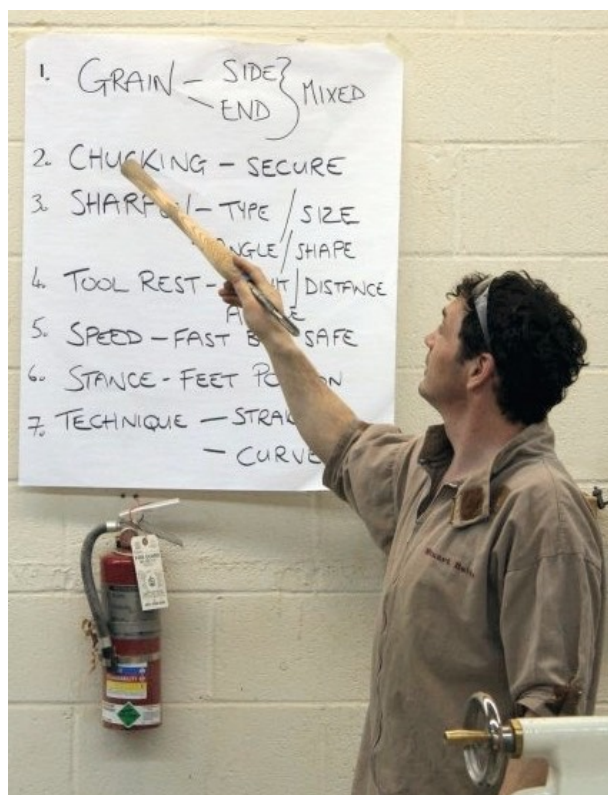 1. GRAIN – SIDE } MIXED
– END
2. CHUCKING – SECURE
3. – TYPE / SIZE
ANGLE / SHAPE
4. TOOL REST – / DISTANCE
5. SPEED – FAST SAFE
6. STANCE – FEET
7. TECHNIQUE –
– CURVE